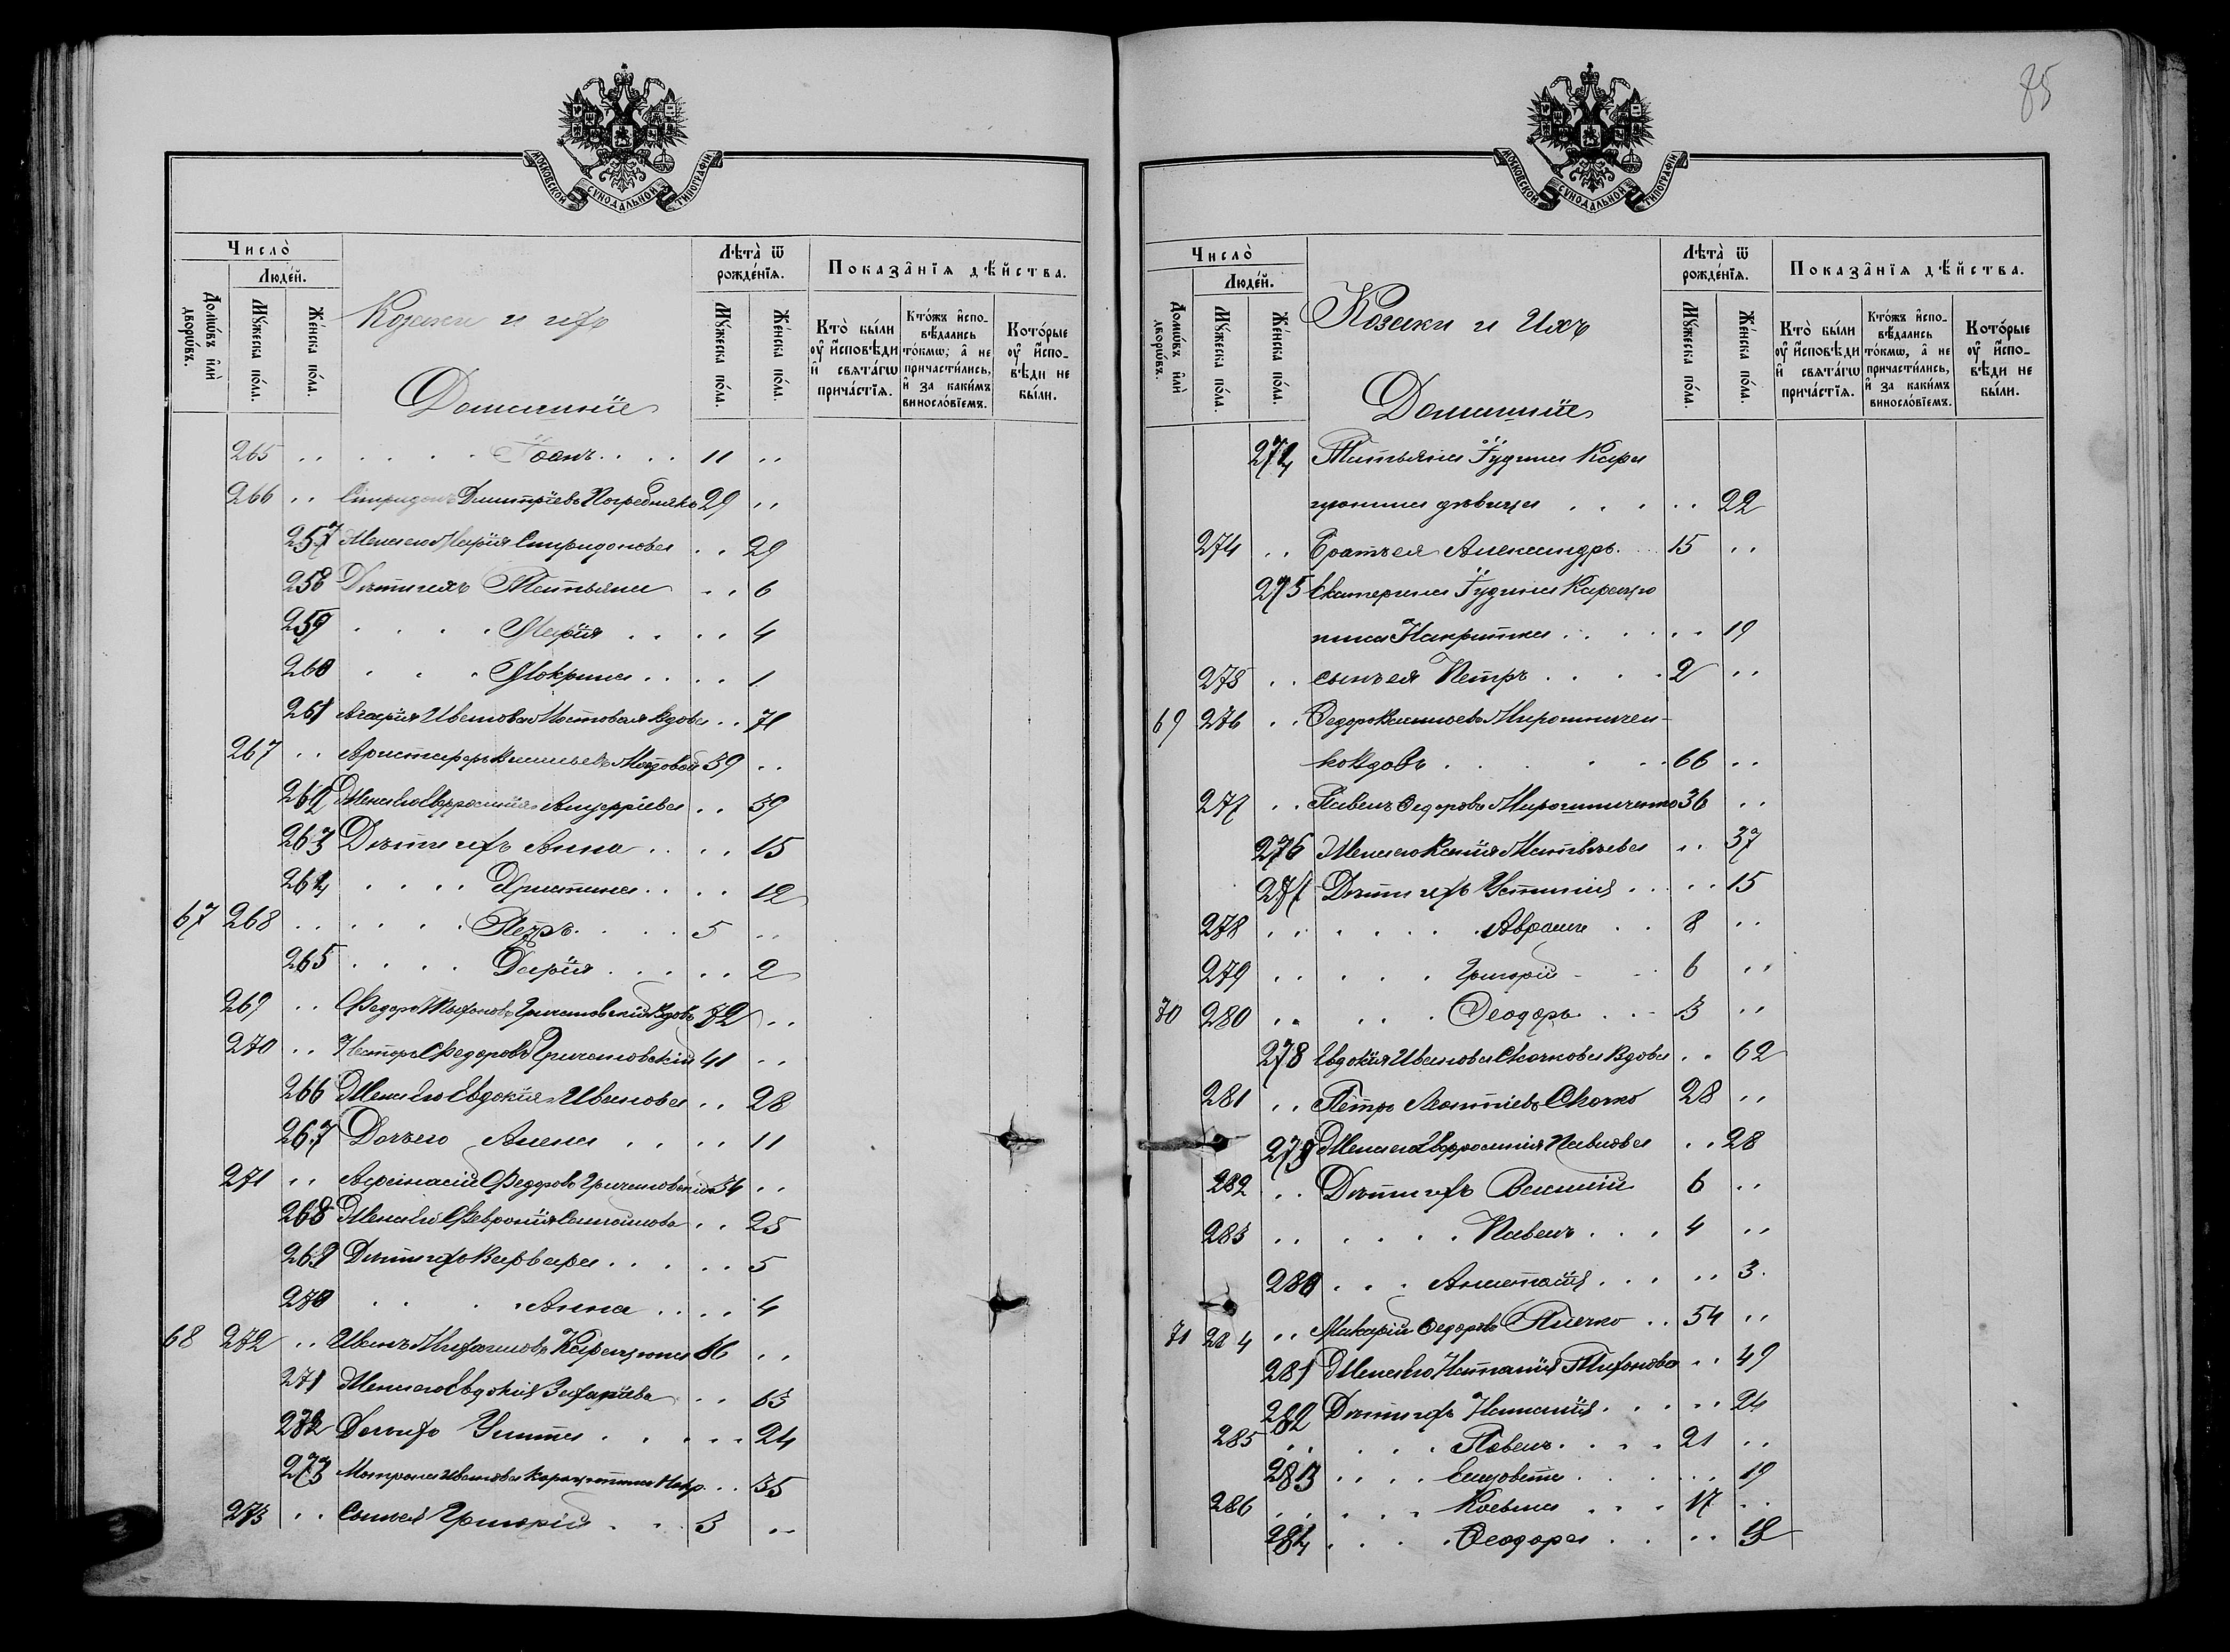 85
МОСКОВСКОЙ СУНОДАЛЬНОЙ ТИПОГРАФІИ
Число̀
Люде́й.
Домѡ́въ и҆лѝ дворѡ́въ.
Мꙋ́жеска по́ла.
Же́нска по́ла.
Козаки и ихъ
Домашніе
Лѣта̀ ѿ рожде́нїѧ.
Мꙋ́жеска по́ла.
Же́нска по́ла.
Показа̑нїѧ дѣ́йства.
Кто̀ бы́ли ᲂу҆ и҆сповѣ́ди и҆ свѧта́гѡ прича́стїѧ.
Кто́жъ и҆сповѣ́дались то́кмѡ, а҆ не причасти́лись, и҆ за каки́мъ винословїемъ.
Кото́рые ᲂу҆ и҆сповѣ́ди не бы́ли.
265 .. . . . . Іоанъ . . . . 11 ..
266 .. Спиридонъ Дмитріевъ Погребнякъ 29 ..
257 Жена его Марія Спиридонова .. 29
258 Дѣти ихъ Татьяна .. 6
259 . . . . Марія . . .. 4
260 . . . Мокрина . . .. 1
261 Агафія Иванова Мотовая Вдова .. 71
267 .. Аристархъ Васильевъ Мотовой 39 ..
262 Жена его Евфросинія Андреева .. 39
263 Дѣти ихъ Анна . . .. 15
264 . . . . Христина . . .. 12
67 268 .. . . . . Петръ . . . . 5 ..
265 . . . . Дарія . . . .. 2
269 .. Федоръ Тихоновъ Григоновскій Вдовъ 72 ..
270 .. Несторъ Федоровъ Григоновскій 41 ..
266 Жена его Евдокія Иванова .. 28
267 Дочь его Анна . . .. 11
271 .. Афанасій Федоровъ Григоновскій 34 ..
268 Жена его Февронія .. 25
269 Дѣти ихъ Варвара . . . .. 5
270 . . . . Анна . . .. 4
68 272 .. Иванъ Михаиловъ 66 ..
271 Жена его Евдокія Захаріева .. 63
272 Дочь ихъ Улита . . . .. 24
273 Матрона Иванова Покр. .. 35
273 .. Сынъ ея Григорій . . . 3 ..
Число̀
Люде́й.
Домѡ́въ и҆лѝ дворѡ́въ.
Мꙋ́жеска по́ла.
Же́нска по́ла.
Козаки и Ихъ
Домашніе
Лѣта̀ ѿ рожде́нїѧ.
Мꙋ́жеска по́ла.
Же́нска по́ла.
Показа̑нїѧ дѣ́йства.
Кто̀ бы́ли ᲂу҆ и҆сповѣ́ди и҆ свѧта́гѡ прича́стїѧ.
Кто́жъ и҆сповѣ́дались то́кмѡ, а҆ не причасти́лись, и҆ за каки́мъ винословїемъ.
Кото́рые ᲂу҆ и҆сповѣ́ди не бы́ли.
274 Татьяна Іудина
дѣвица . . . .. 22
274 .. Братъ ея Александръ . . 15 ..
275 Екатерина Іудина
Покритка . . . .. 19
275 .. сынъ ея Петръ . . . . 2 ..
69 276 .. Федоръ Васильевъ Мирошничен-
ко Вдовъ . . . . 66 ..
277 .. Павелъ Федоровъ Мирошниченко 36 ..
276 Жена его Ксенія Матвѣева .. 37
277 Дѣти ихъ Устинія . . .. 15
278 .. . . . . Аврамъ . . 8 ..
279 .. . . . . Григорій - . 6 ..
70 280 .. . . . Феодоръ . . - 3 ..
278 Евдокія Иванова Скочкова Вдова .. 62
281 .. Петръ Леонтіевъ Скочко 28 ..
279 Жена его Евфросинія Павлова .. 28
282 .. Дѣти ихъ Василій 6 ..
283 .. . . . . Павелъ . . . 4 ..
280 . . . Анастасія . . . .. 3.
71 284 .. Макарій Федоровъ .. 54 ..
281 Жена его Наталія Тихонова .. 49
282 Дѣти ихъ Наталія . . . .. 24
285 .. . . . . Павелъ . . . . 21 ..
283 . . . . Елисавета . . . .. 19
286 .. . . . . Косьма . . . 17 ..
284 . . . . Феодора . . .. 13